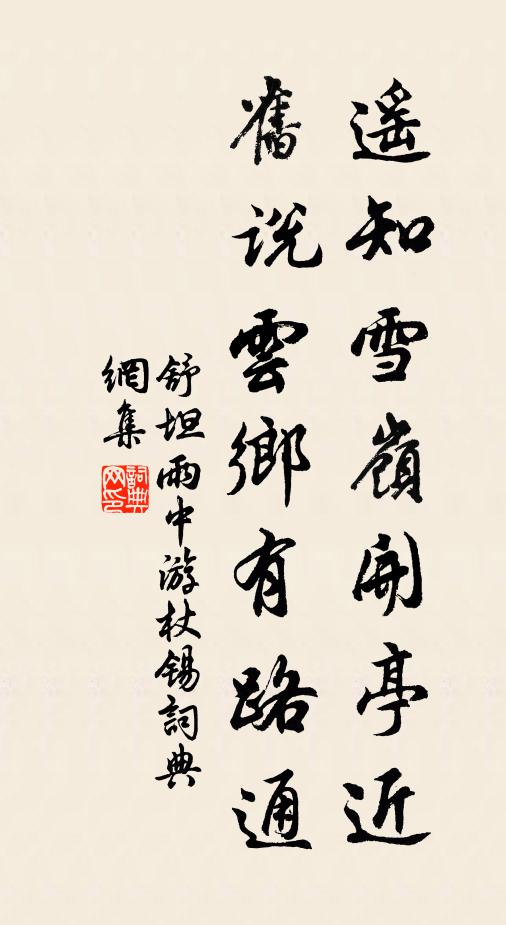 遥知雪嶺開亭近
舊説雲鄉有路通
舒坦雨中游杖錫詞典
網集
詞典
网印